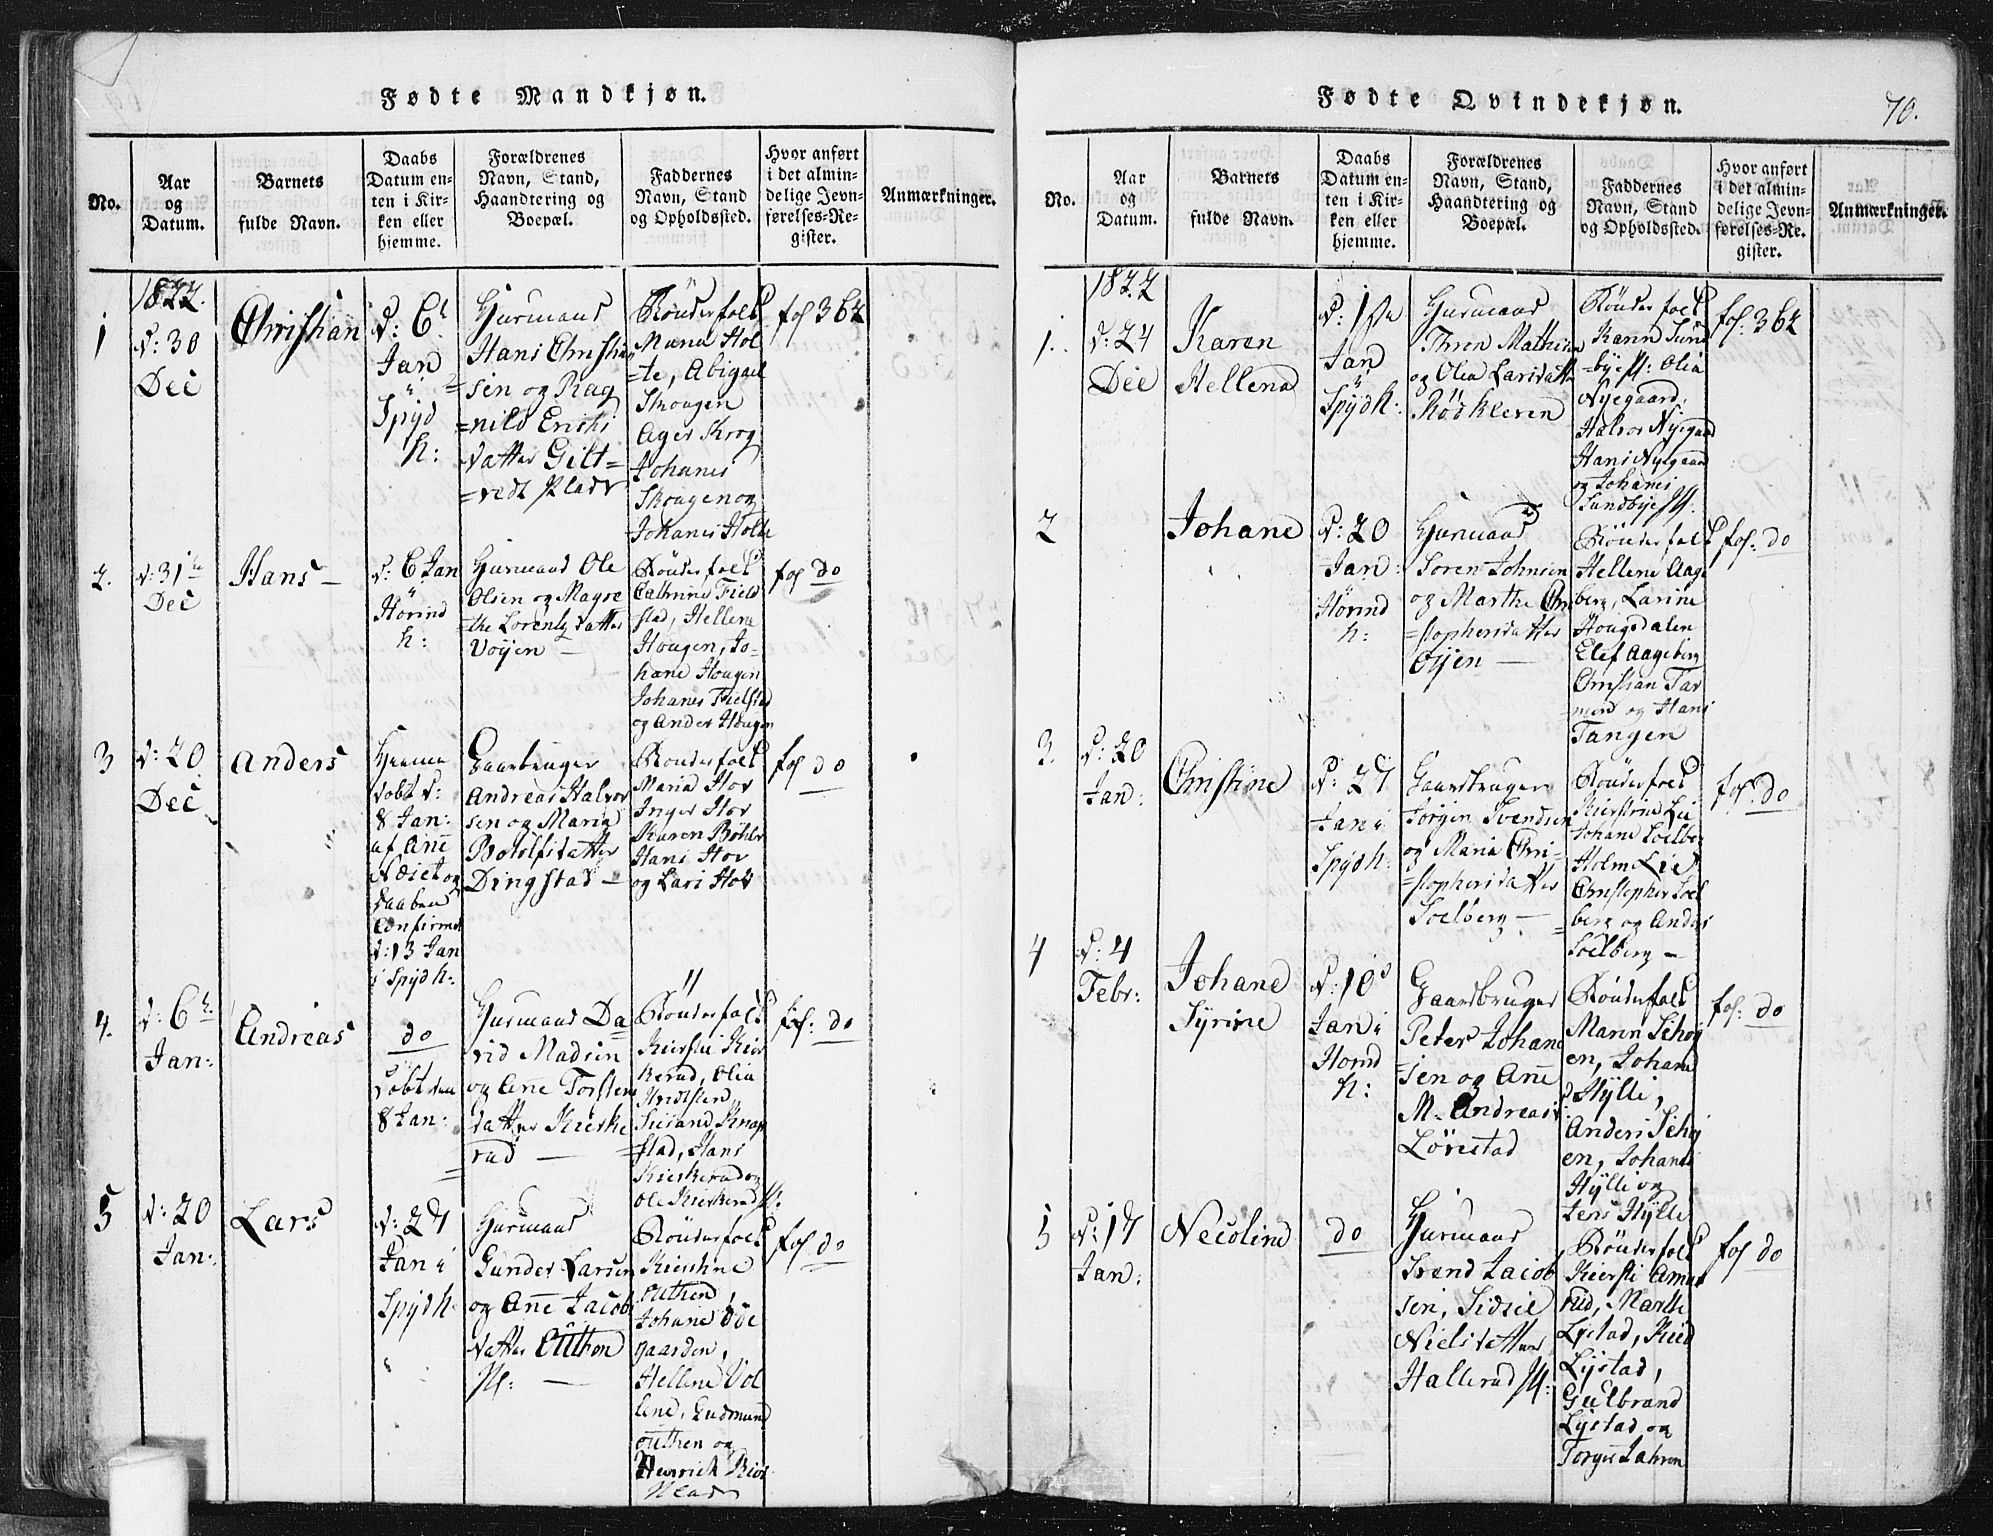 Fødte Mandkjøn.
No.
Aar
og
Datum.
Barnets
fulde Navn.
Daabs
Datum en-
ten i Kir-
ken eller
hjemme.
Forældrenes
Navn, Stand,
Haandtering og
Boepæl.
Faddernes
Navn, Stand
og Opholdssted.
Hvor anført
i det almin-
delige Jevn-
førelses-Re-
gister.
Anmærkninger.
1
1822.
d: 30
Dec
Christian
d: 6t
Jan
Spyd
h:
Huusmand
Hans Christian
sen og Rag
=nild Erichs
datter Gilt=
=vedt Plads
Bønderfolk
Maria Hol
=te, Abigael
Skougen
Ager Krog
Johanes
Skougen og
Johanes Holte
fol 362
2.
d: 31te
Dec
Hans —
d: 6 Jan
Hörind
h:
Huusmand Ole
Olsen og Magre
=the Lorentz datter
Voyen —
Bønderfolk
Cathrine Field
stad, Hellene
Hougen, Jo-
hane Hougen
Johanes Fielstad
og Ander Hougen
fol do
3
d: 20
Dec
Anders
Hiemme
døbt d:
8 Jan:
af Ane
Næiet og
Daaben
Confirmet
d: 13 Jan
i Spydh:
Gaardbruger
Andreas Halvor
sen og Maria
Botolfsdatter
Dingstad —
Bønderfolk
Maria Hov
Inger Hov
Karen Böhler
Hans Hov
og Lars Hov
fol do
4.
d: 6t
Jan:
Andreas
do
døbt den
8 Jan:
Huusmand Da
vid Madsen
og Ane Torsten
datter Kierke
rud —
Bønderfolk
Kiersti Kier
kerud, Olia
Hvidsten
Siesand Knap
stad, Hans
Kierkerud og
Ole Kierkerud
fol: do
5
d: 20
Jan:
Lars
d: 27
Jan i
Spydh:
Huusmand
Gunder Larsen
og Ane Jacobs
datter Outhen
Pl: —
Bønderfolk
Kierstine
outhen,
Johane Ode
gaarden,
Hellene Vol
lene, Gudmund
outhen og
Henrich
fol do
Fødte Qvindekjøn.
70.
No.
Aar
og
Datum.
Barnets
fulde Navn.
Daabs
Datum en-
ten i Kir-
ken eller
hjemme.
Forældrenes
Navn, Stand,
Haandtering og
Boepæl.
Faddernes
Navn, Stand
og Opholdssted.
Hvor anført
i det almin-
delige Jevn-
førelses-Re-
gister.
Anmærkninger.
1.
1822
d: 24
Dec
Karen
Hellena
d: 1ste
Jan
Spydh:
Huusmand
Thron Mathisen
og Olea Larsdatt
Rödkleven
Bønderfolk
Karen Sund
bye Pl: Olia
Nyegaard:
Halvor Nyegaard
Hans Nyegaard
og Johanes
Sundbye Pl.
fol: 362
2
Johane
d: 20
Jan:
Hörind
h:
Huusmand
Soren Johnsen
og Marthe Chri
=stophersdatter
Oyen —
Bønderfolk
Hellene Aage
berg, Larine
Hougsdalen
Elef Aageberg
Christian Tar
mend og Hans
Tangen
fol: do
3.
d: 20
Jan:
Christine
d: 27
Jan i
Spydh:
Gaardbruger
Jörgen Svendsen
og Maria Chri-
=stophersdatter
Soelberg —
Bønderfolk
Kierstine Lie
Johane Soelberg
Holm Lie
Christopher Soel
berg og Anders
Soelberg —
fol: do
4
d: 4
Febr:
Johane
Syrine
d: 10
Jan i
Horind
h:
Gaardbruger
Peter Johane
=sen og Ane
M. Andreasd:
Lörestad
Bønderfolk
Maren Schog
en, Johane
Hylli,
Anders Schog
en, Johanes
Hylli og
Jens Hylli
fol: do
5
d: 17
Jan:
Necoline
do
Huusmand
Svend Jacob
sen, Sidsel
Nielsdatter
Hallerud Pl:
Bønderfolk
Kiersti Amund
rud, Marthe
Lystad,
Lystad,
Gulbrand
Lystad og
Torger
fol do